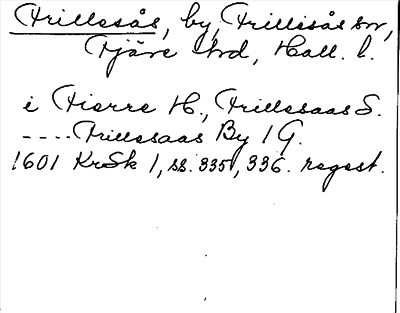 Frillesås, by, Frillesås sn,
Fjäre hd, Hall. l.
i Fierre H., Frillesaas S.
---- Frillesaas By 1 G.
1601 KrSk 1, ss. 335, 336. regest.